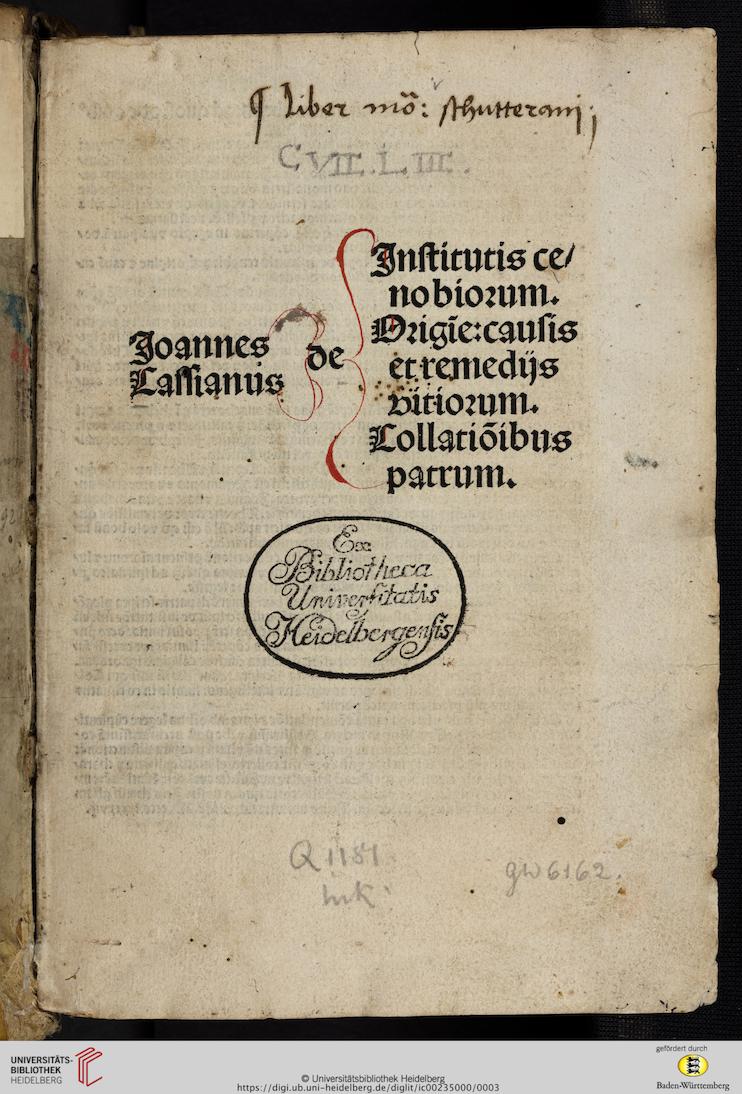 ¶ Liber mō: schutterani;
C VII. L III.
Joannes
Cassianus
de
Institutis ce/
nobiorum.
Origīe: causis
et remedijs
vitiorum.
Collatiōibus
patrum.
Ex
Bibliotheca
Universitatis
Heidelbergensis
Q 1181
Ink
GW 6162.
UNIVERSITÄTS-
BIBLIOTHEK
HEIDELBERG
© Universitätsbibliothek Heidelberg
https://digi.ub.uni-heidelberg.de/diglit/ic00235000/0003
gefördert durch
Baden-Württemberg